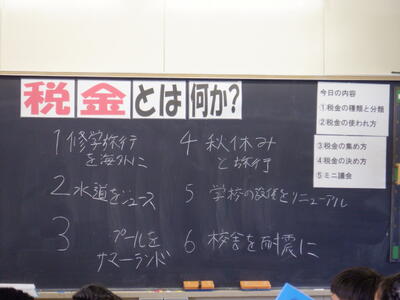 税金とは何か?
今日の内容
1税金の種類と分類
2税金の使われ方
3税金の集め方
4税金の決め方
5ミニ議会
1修学旅行
を海外に
2水道をジュース
3 プールを
サマーランド
4 秋休み
と旅行
5 学校の設備をリニューアル
6 校舎を耐震に